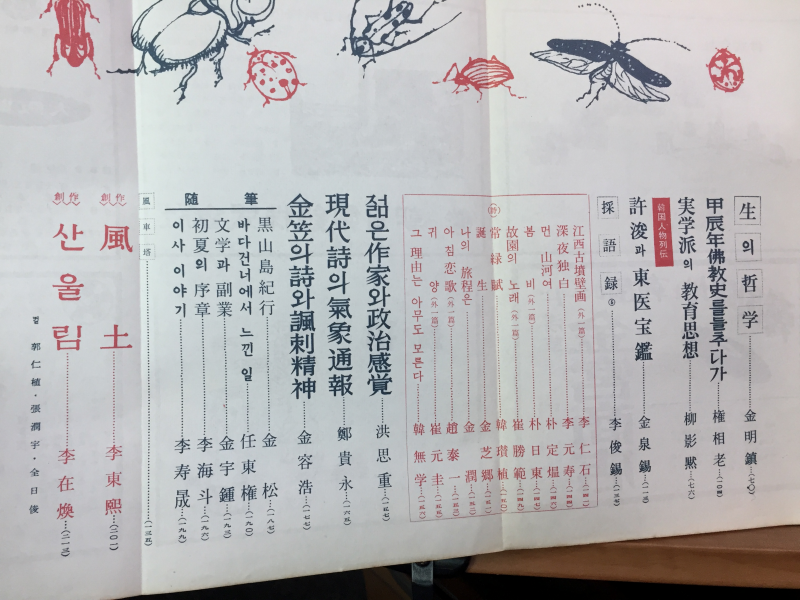 生의哲学 金明鎭 (七〇)
甲辰年佛教史를들추다가 権相老 (一〇四)
実学派의 教育思想 柳影黙 (七六)
韓国人物列伝
許浚과 東医宝鑑 金泉錫
採語録 李俊錫
詩
江西古墳壁画(外一篇) 李仁石
深夜独白 李元寿
먼 山河여 朴定熅
봄 비(外一篇) 朴日東
故園의 노래(外一篇) 崔勝範
常緑賦 韓瓚植
誕生 金芝郷
나의 旅程은 金潤
아침恋歌(外一篇) 趙泰一
귀양(外一篇) 崔元圭
그 理由는 아무도 모른다 韓無学
젊은作家와政治感覚 洪思重 (一五七)
現代詩의氣象通報 鄭貴永 (一六五)
金笠의詩와諷刺精神 金容浩 (一七七)
随筆
黒山島紀行 金松 (一八七)
바다건너에서 느낀 일 任東権 (一九〇)
文学과 副業 金宇鍾 (一九三)
初夏의 序章 李海斗 (一九六)
이사 이야기 李寿晟 (一九九)
風車塔 (一三五)
創作 風土 李東熙 (二〇一)
創作 산울림 李在煥
컽 郭仁植・張潤宇・全日俊